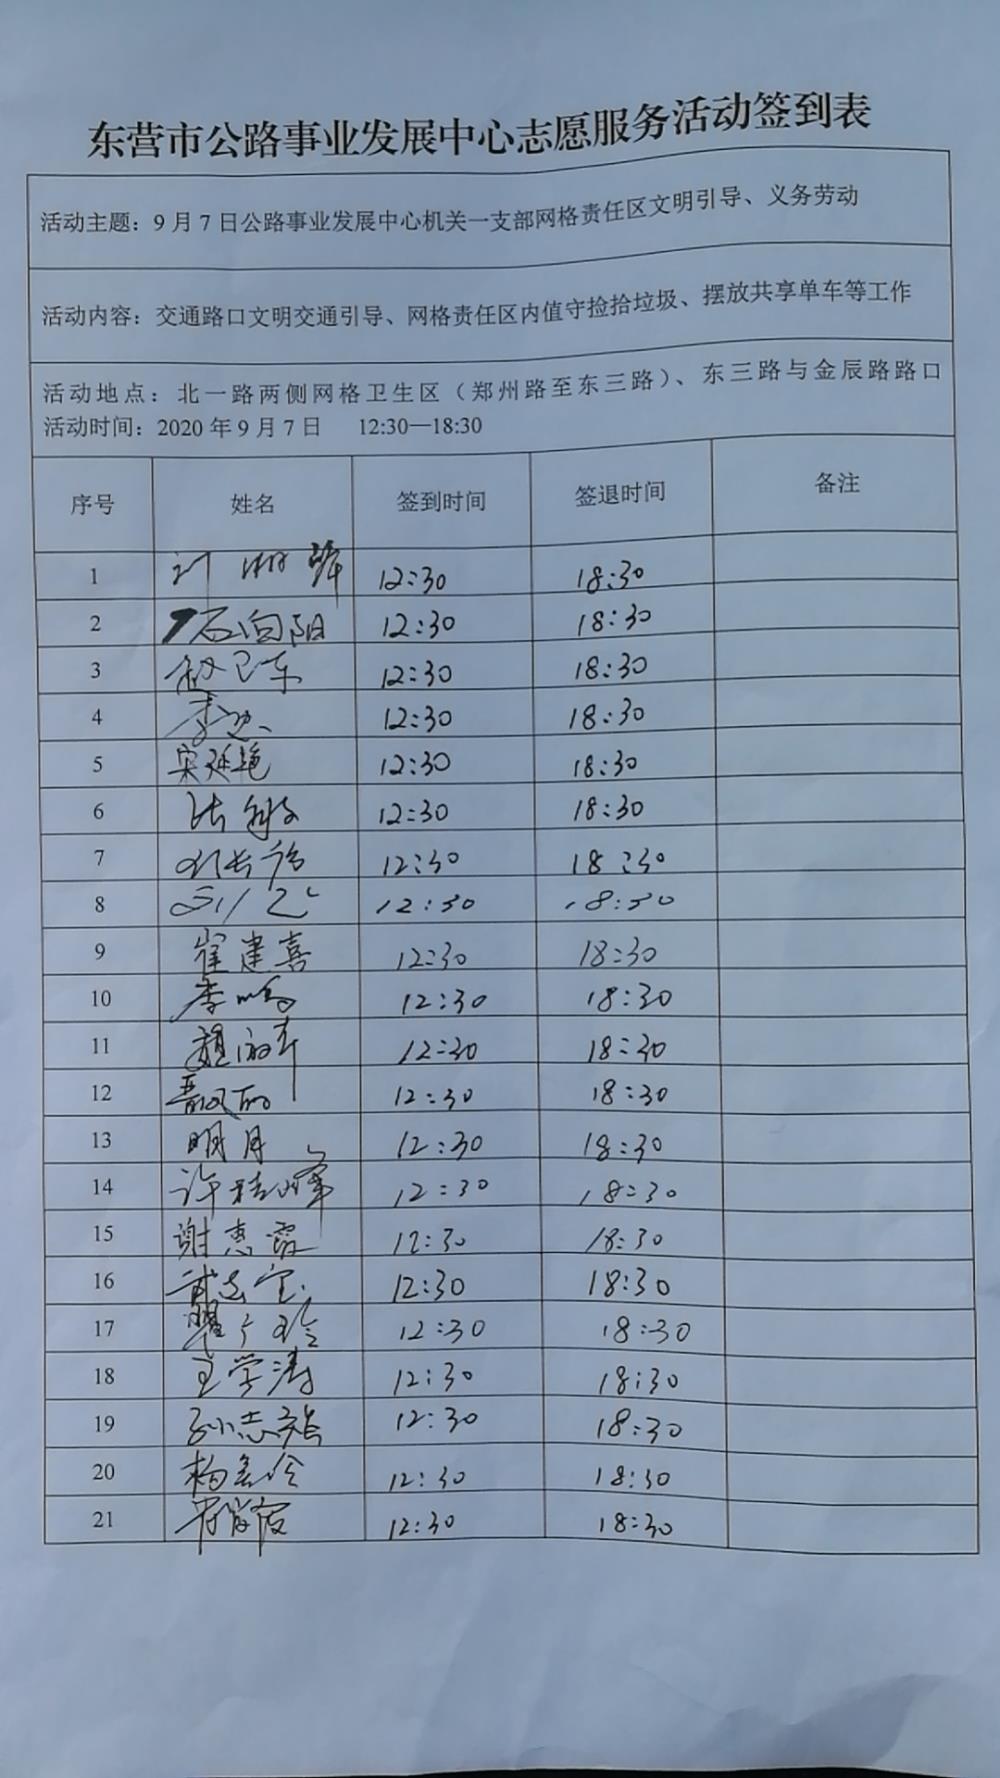 东营市公路事业发展中心志愿服务活动签到表
活动主题：9月7日公路事业发展中心机关一支部网格责任区文明引导、义务劳动
活动内容：交通路口文明交通引导、网格责任区内值守捡拾垃圾、摆放共享单车等工作
活动地点：北一路两侧网格卫生区（郑州路至东三路）、东三路与金辰路路口
活动时间：2020年9月7日 12:30—18:30
序号 姓名 签到时间 签退时间 备注
1 12:30 18:30
2 石向阳 12:30 18:30
3 赵卫东 12:30 18:30
4 李 12:30 18:30
5 宋延艳 12:30 18:30
6 张敏 12:30 18:30
7 12:30 18:30
8 12:30 18:30
9 崔建喜 12:30 18:30
10 李鸣 12:30 18:30
11 12:30 18:30
12 12:30 18:30
13 明月 12:30 18:30
14 12:30 18:30
15 谢惠霞 12:30 18:30
16 武志宝 12:30 18:30
17 12:30 18:30
18 王学涛 12:30 18:30
19 孙志 12:30 18:30
20 杨 12:30 18:30
21 12:30 18:30